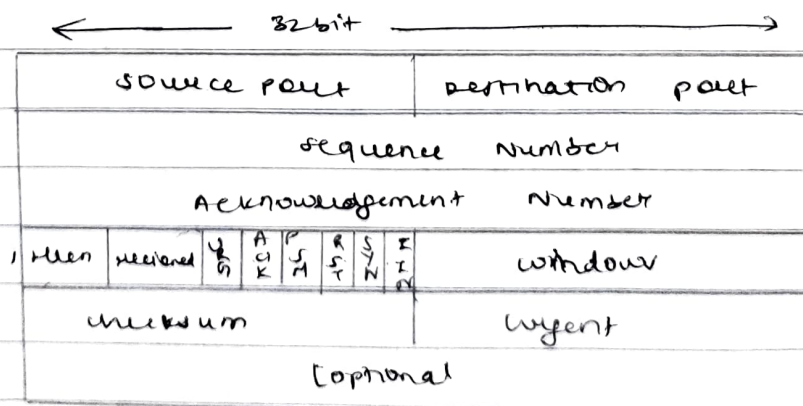 32 bit
source port Destination port
sequence Number
Acknowledgement Number
Hlen reserved URG ACK PSH RST SYN FIN window
checksum urgent
[optional